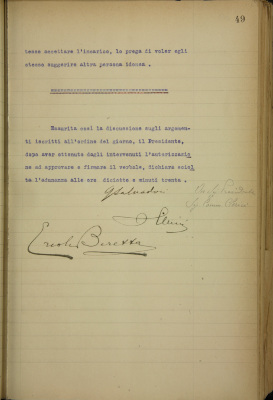 49
tesse accettare l'incarico, lo prega di voler egli
stesso suggerire altra persona idonea .
Esaurita così la discussione sugli argomen-
ti iscritti all'ordine del giorno, il Presidente,
dopo aver ottenuto dagli intervenuti l'autorizzazio
ne ad approvare e firmare il verbale, dichiara sciol
ta l'adunanza alle ore diciotto e minuti trenta .
GSalvadori
Ercole Baretta